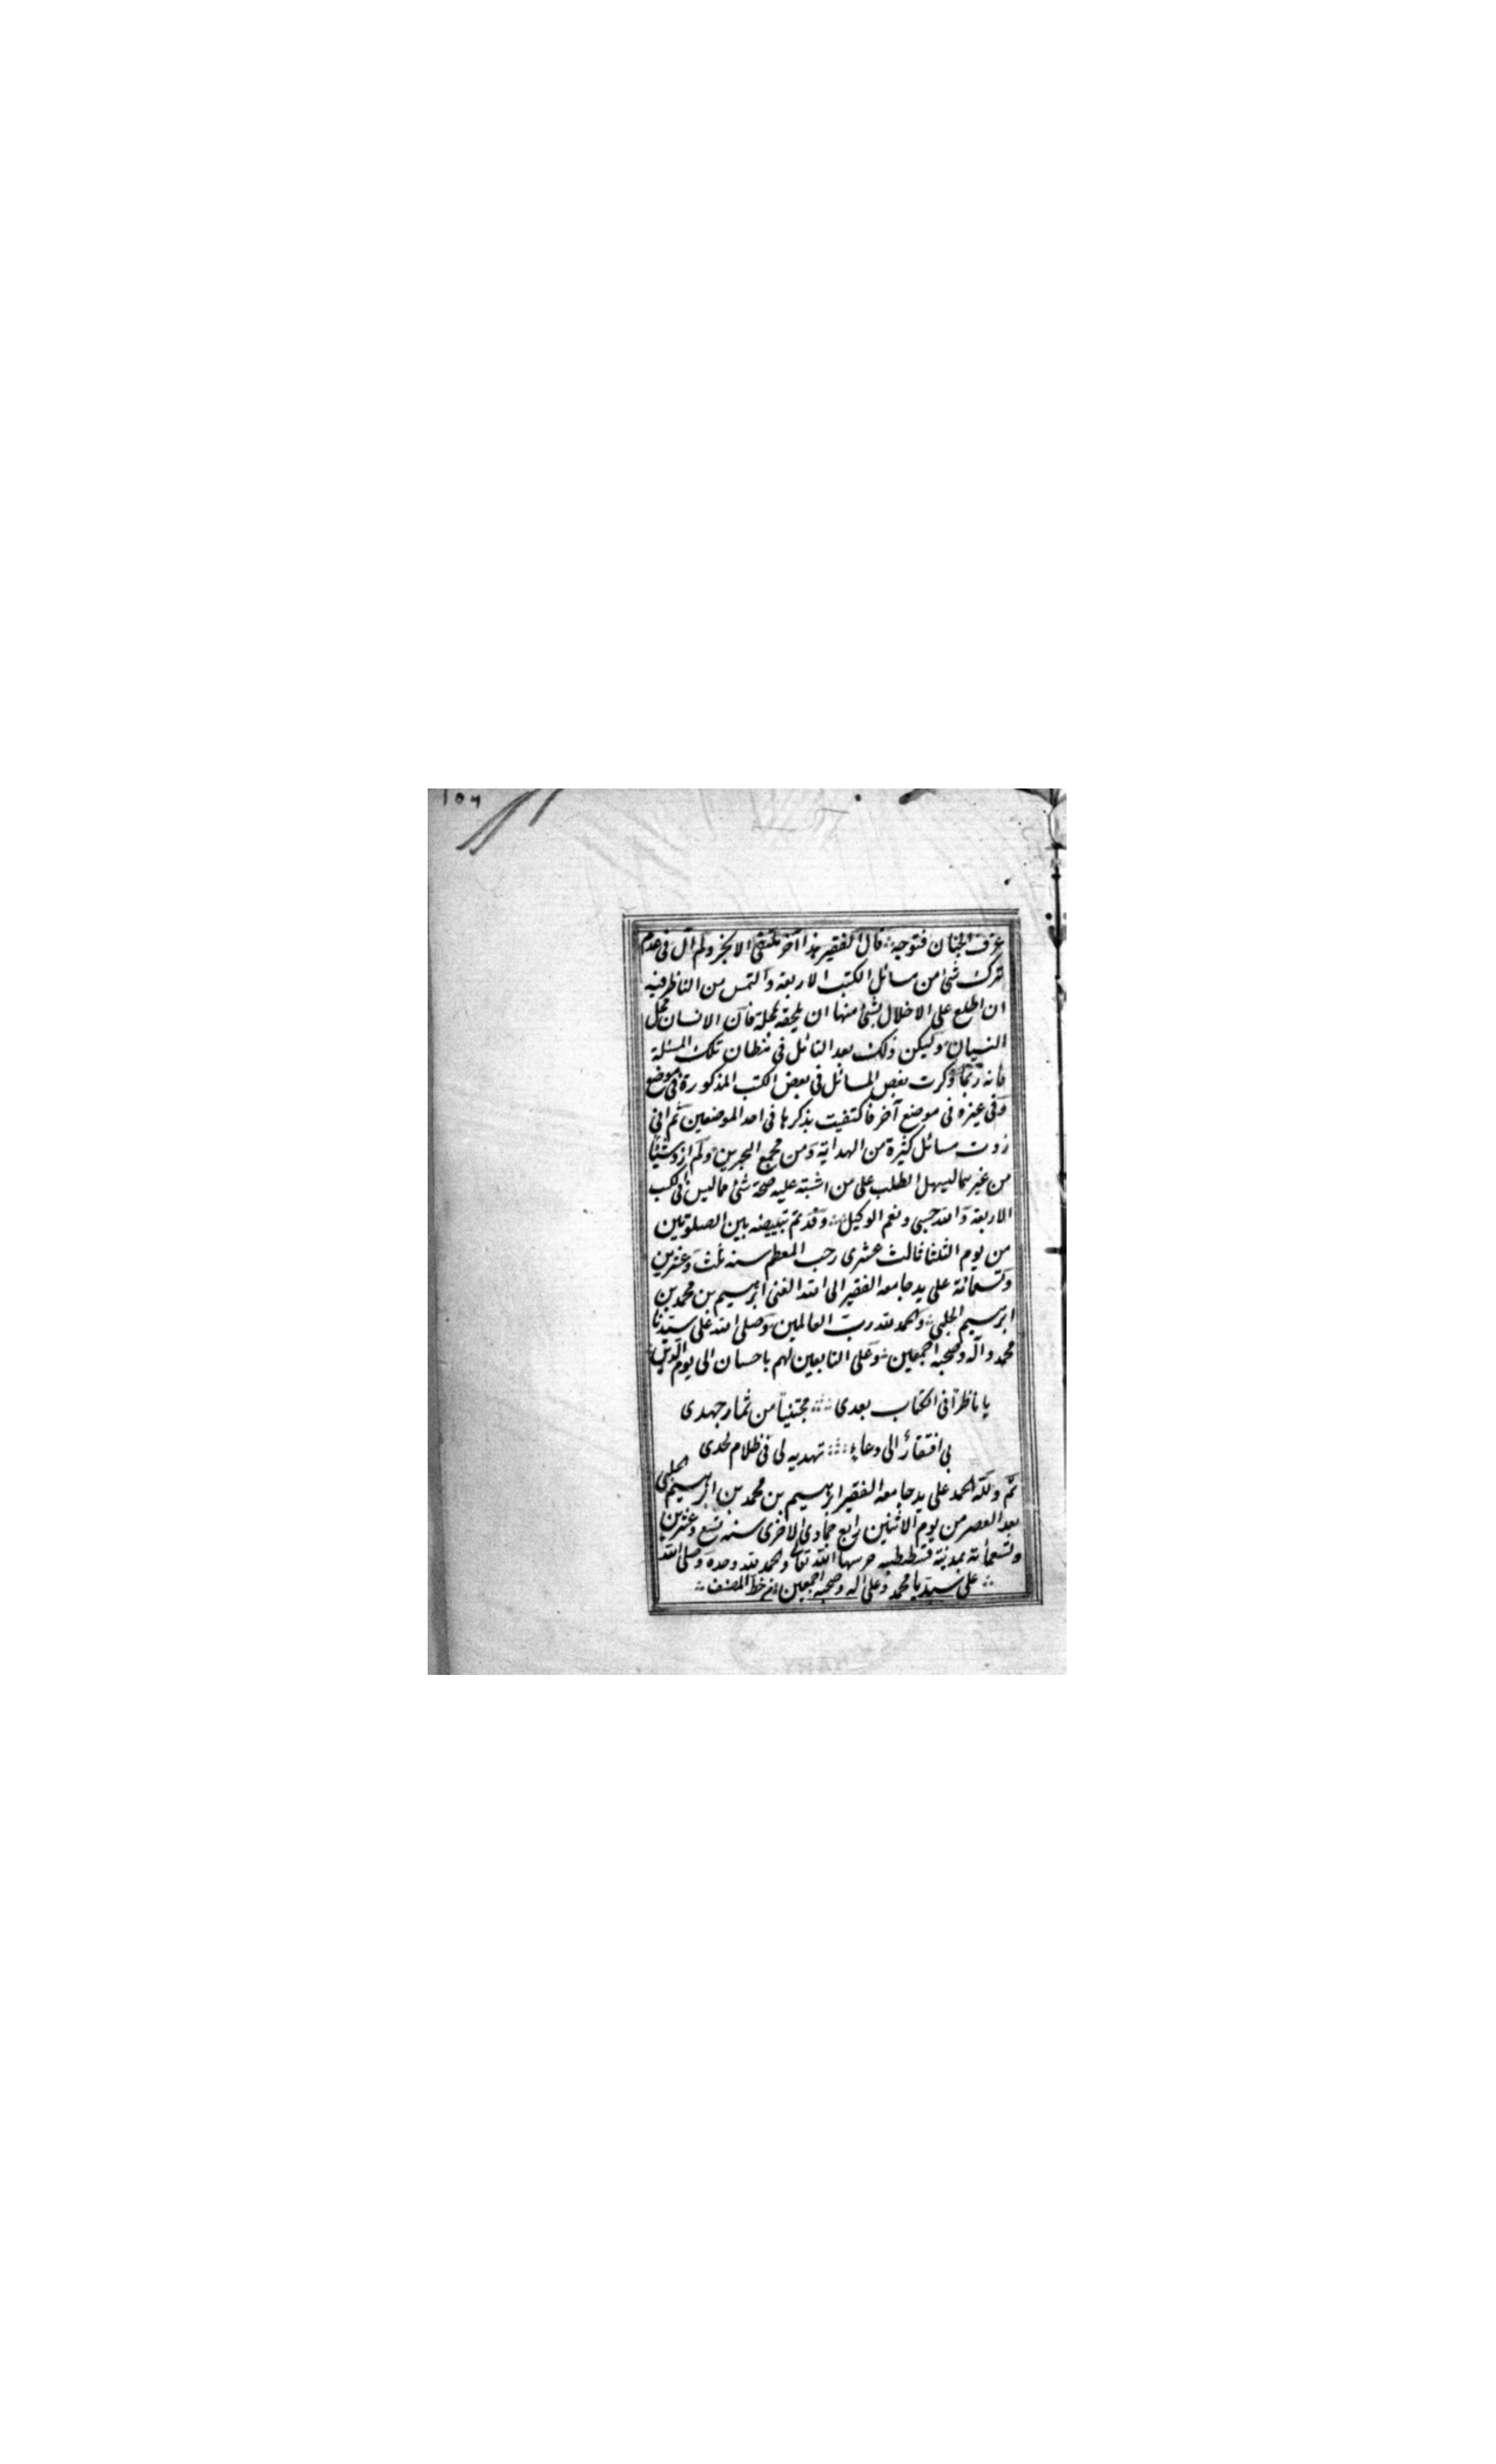 ١٥٦
عرف الجنان فتوجه قال الفقير هذا آخر ملتقى الابحر ولم آل فى عدم
ترك شئ من مسائل الكتب الاربعة والتمس من الناظر فيه
ان اطلع على الاخلال بشئ منها ان يلحقه بمحله فان الانسان محل
النسيان وليكن ذلك بعد التأمل فى مظان تلك المسئلة
فانه ربما ذكرت بعض المسائل فى بعض الكتب المذكورة فى موضع
وفى غيره فى موضع آخر فاكتفيت بذكرها فى احد الموضعين ثم انى
زدت مسائل كثيرة من الهداية ومن مجمع البحرين ولم ازد شيئا
من غيرهما ليسهل الطلب على من اشتبه عليه صحة شئ مما ليس فى الكتب
الاربعة والله حسبى ونعم الوكيل وقد تم تبييضه بين الصلوتين
من يوم الثلثا ثالث عشرى رجب المعظم سنه ثلث وعشرين
وتسمائة على يد جامعه الفقير الى الله الغنى ابرهيم بن محمد بن
ابرهيم الحلبى والحمد لله رب العالمين وصلى الله على سيدنا
محمد وآله وصحبه اجمعين وعلى التابعين لهم باحسان الى يوم الدين
يا ناظرا فى الكتاب بعدى مجتنيا من ثمار جهدى
بى افتقار الى دعاء تهديه لى فى ظلام لحدى
تم ولله الحمد على يد جامعه الفقير ابرهيم بن محمد بن ابرهيم الحلبى
بعد العصر من يوم الاثنين رابع جمادى الاخرى سنه تسع وعشرين
وتسعمائة بمدينة قسطنطنيه حرسها الله تعالى والحمد لله وحده وصلى الله
على سيدنا محمد وعلى اله وصحبه اجمعين من خط المصنف